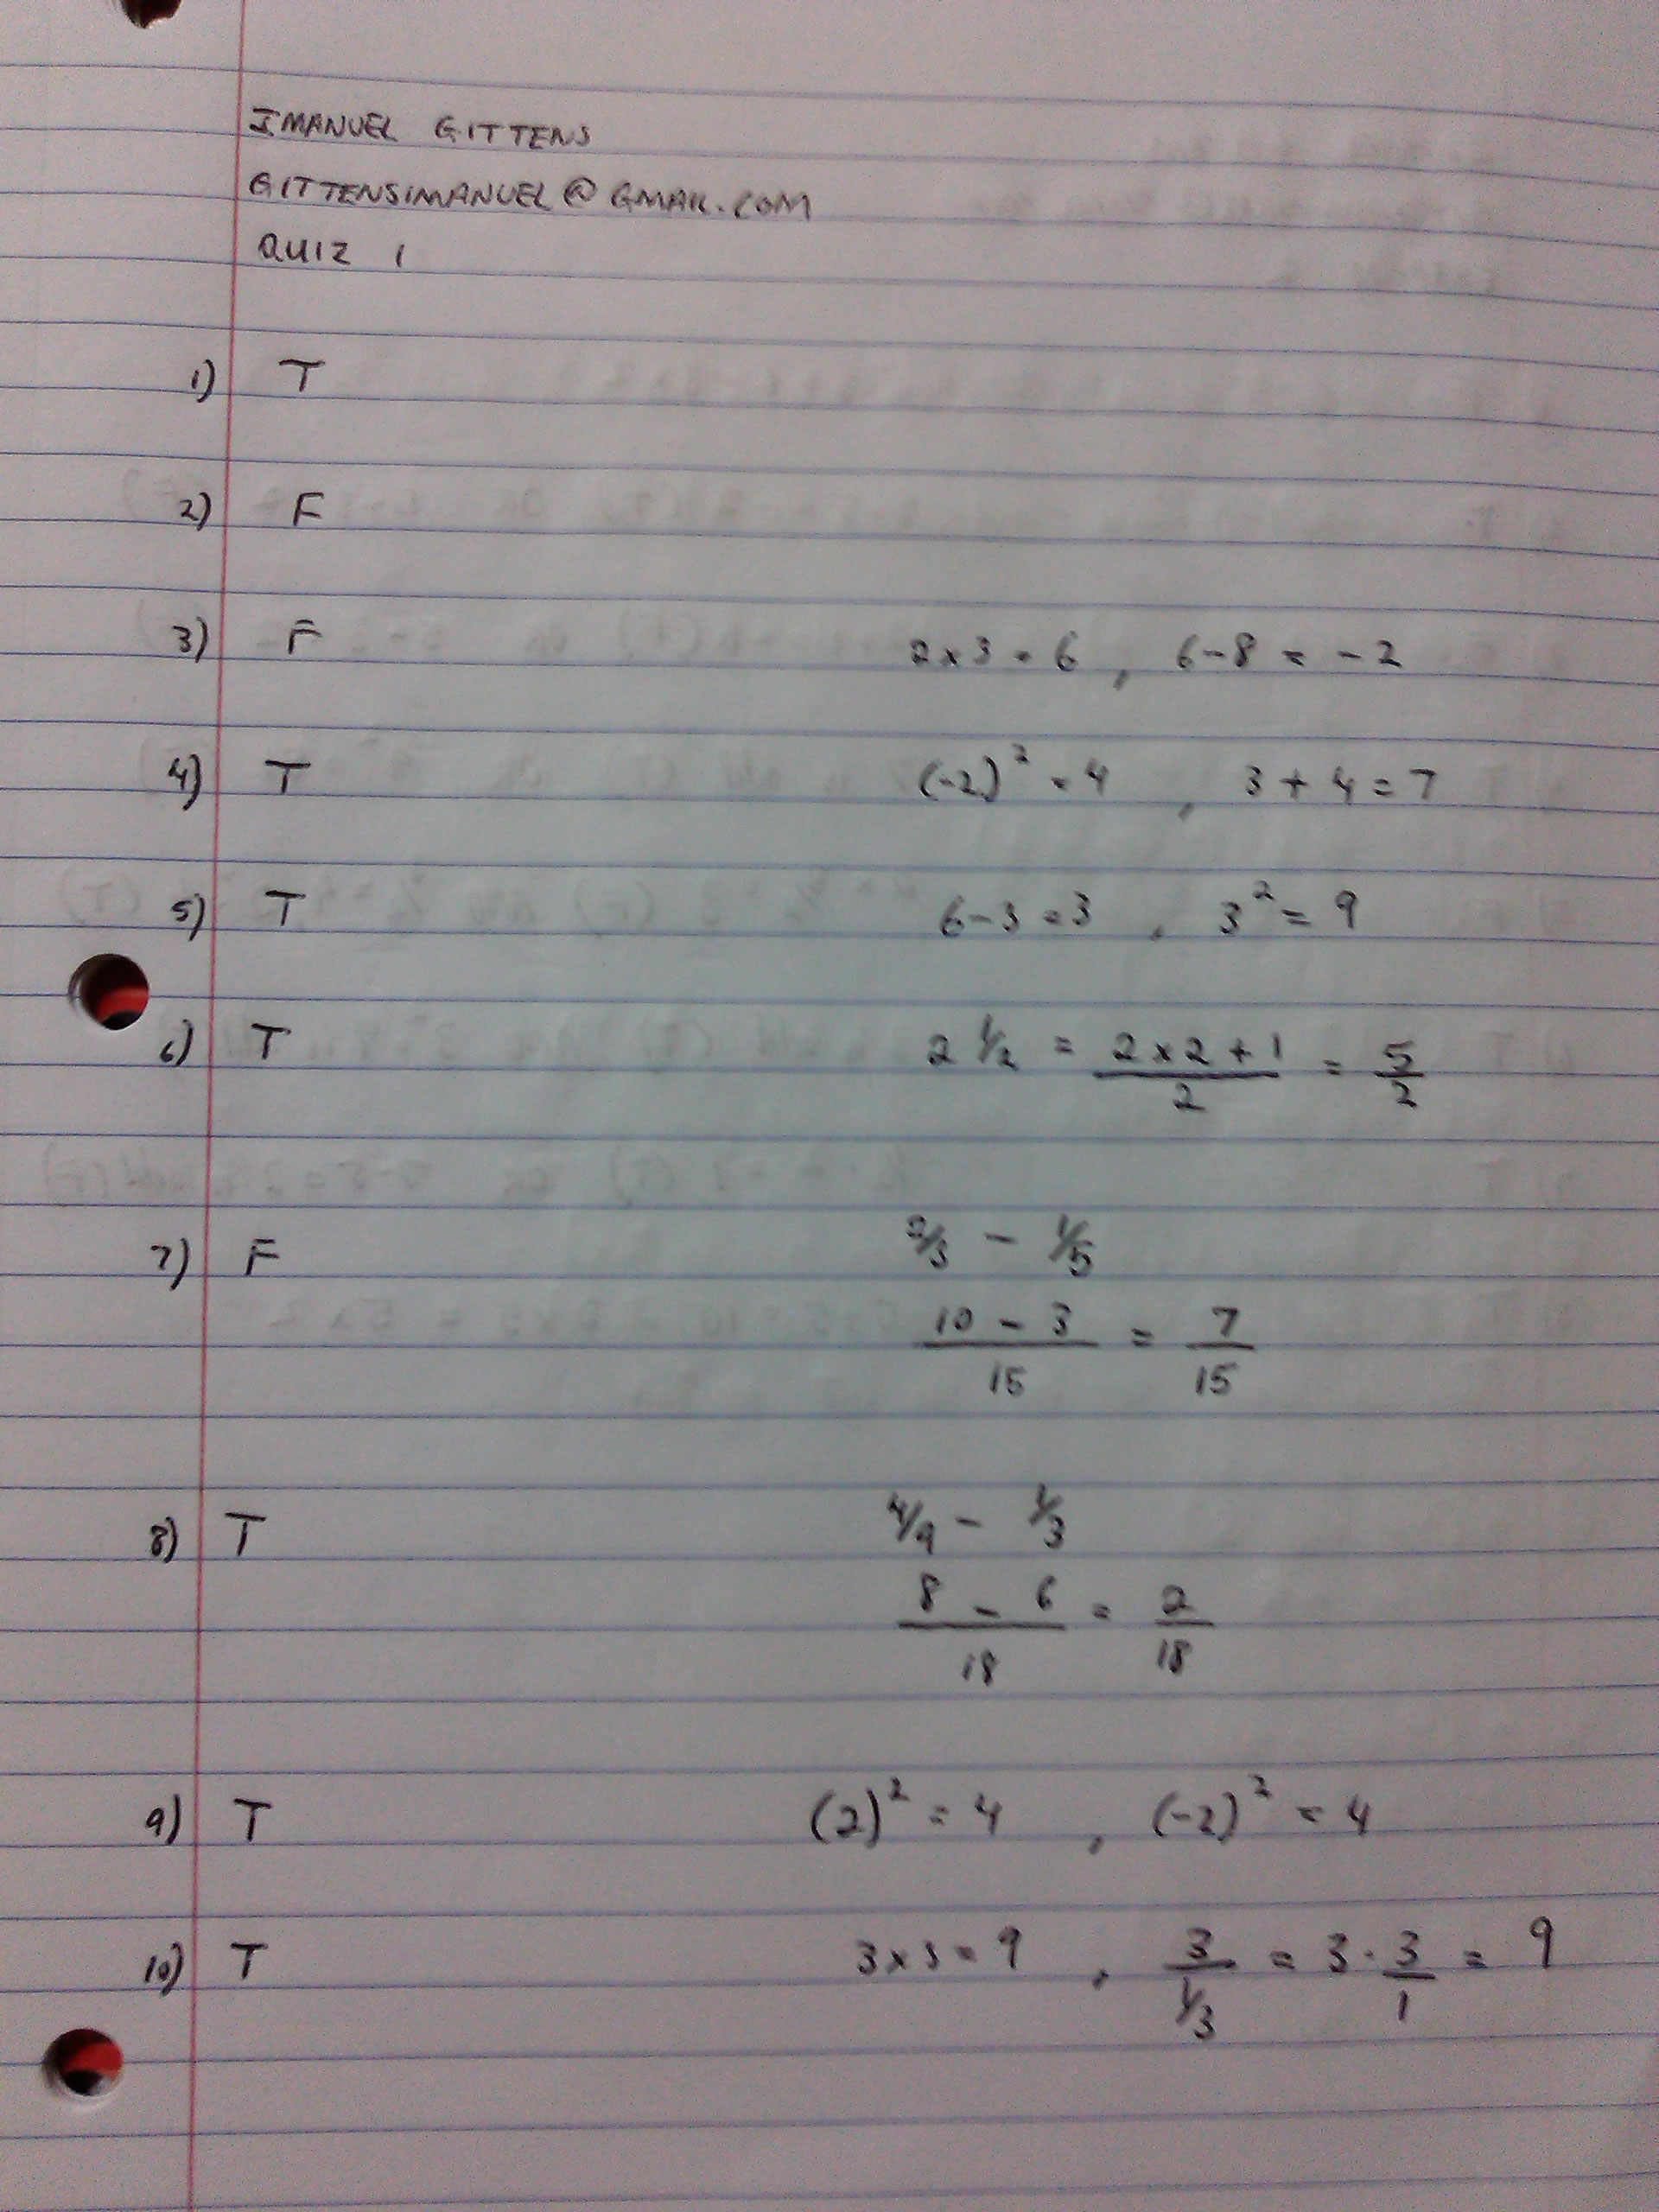 IMANUEL GITTENS
GITTENSIMANUEL@GMAIL.COM
QUIZ 1
1) T
2) F
3) F 2 x 3 = 6 , 6 - 8 = - 2
4) T (-2)² = 4 , 3 + 4 = 7
5) T 6 - 3 = 3 , 3² = 9
6) T 2 1/2 = (2 x 2 + 1)/2 = 5/2
7) F 2/3 - 1/5
(10 - 3)/15 = 7/15
8) T 4/9 - 1/3
(8 - 6)/18 = 2/18
9) T (2)² = 4 , (-2)² = 4
10) T 3 x 3 = 9 , 3/(1/3) = 3 · 3/1 = 9